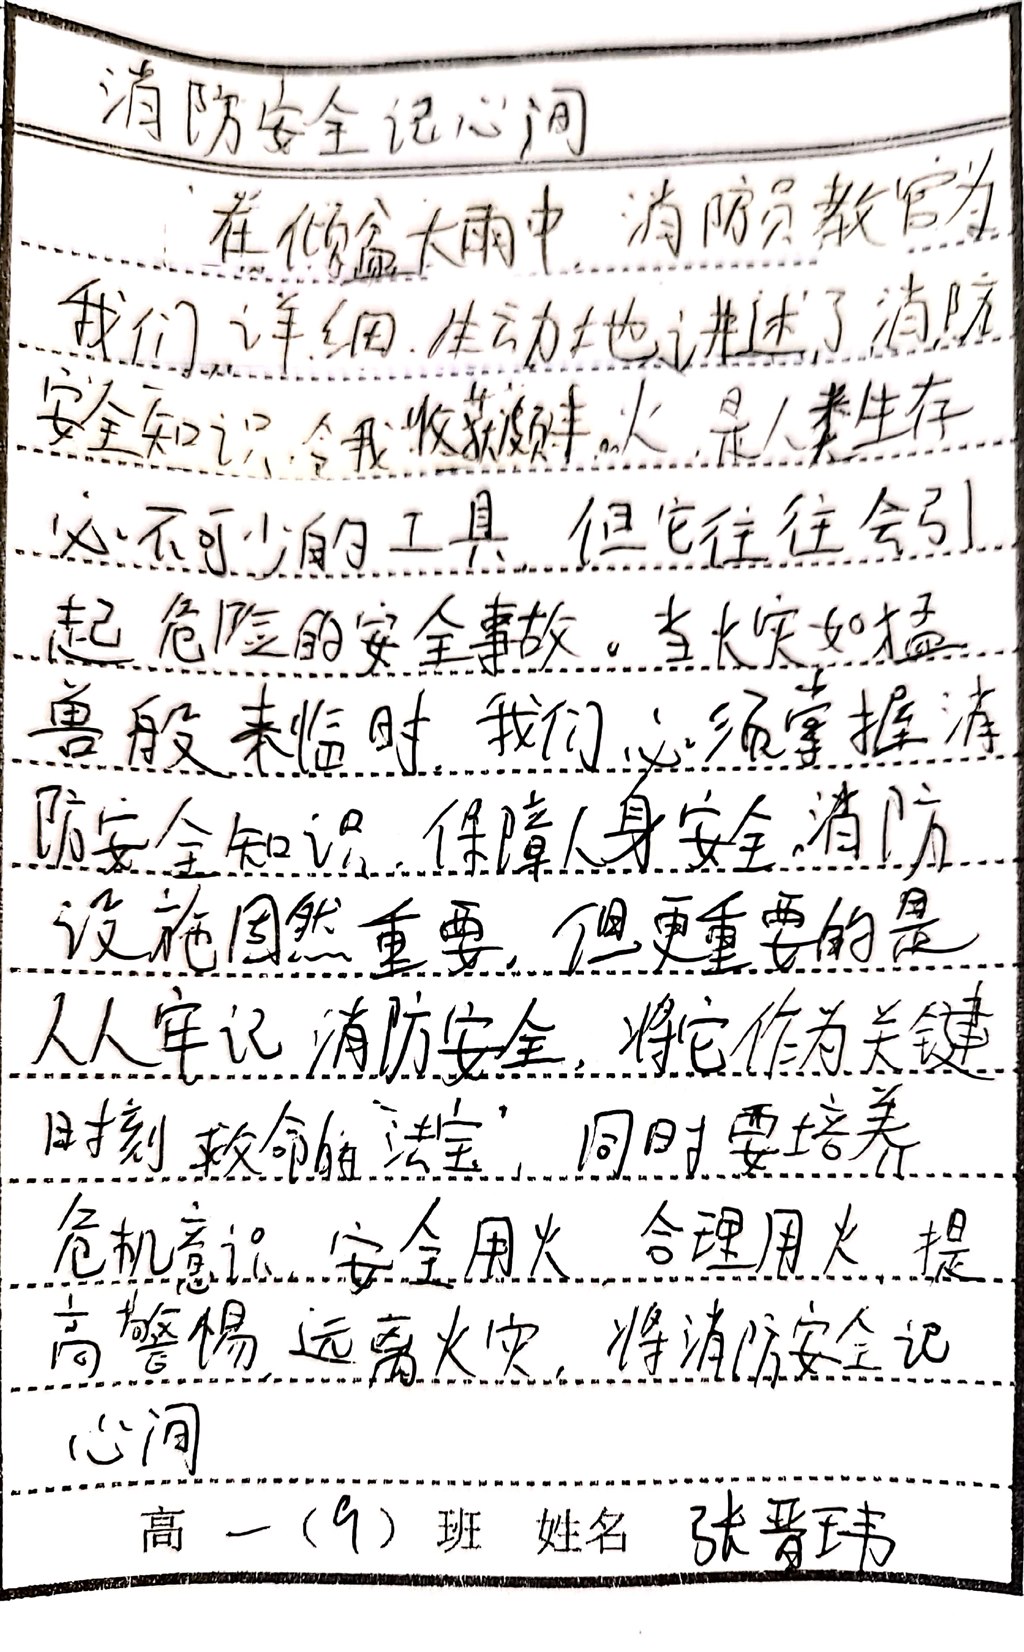 消防安全记心间
在倾盆大雨中,消防员教官为
我们详细、生动地讲述了消防
安全知识,令我收获颇丰。火,是人类生存
必不可少的工具,但它往往会引
起危险的安全事故。当火灾如猛
兽般来临时,我们必须掌握消
防安全知识,保障人身安全。消防
设施固然重要,但更重要的是
人人牢记消防安全,将它作为关键
时刻救命的“法宝”,同时要培养
危机意识,安全用火,合理用火,提
高警惕,远离火灾,将消防安全记
心间
高一(9)班 姓名 张晋玮